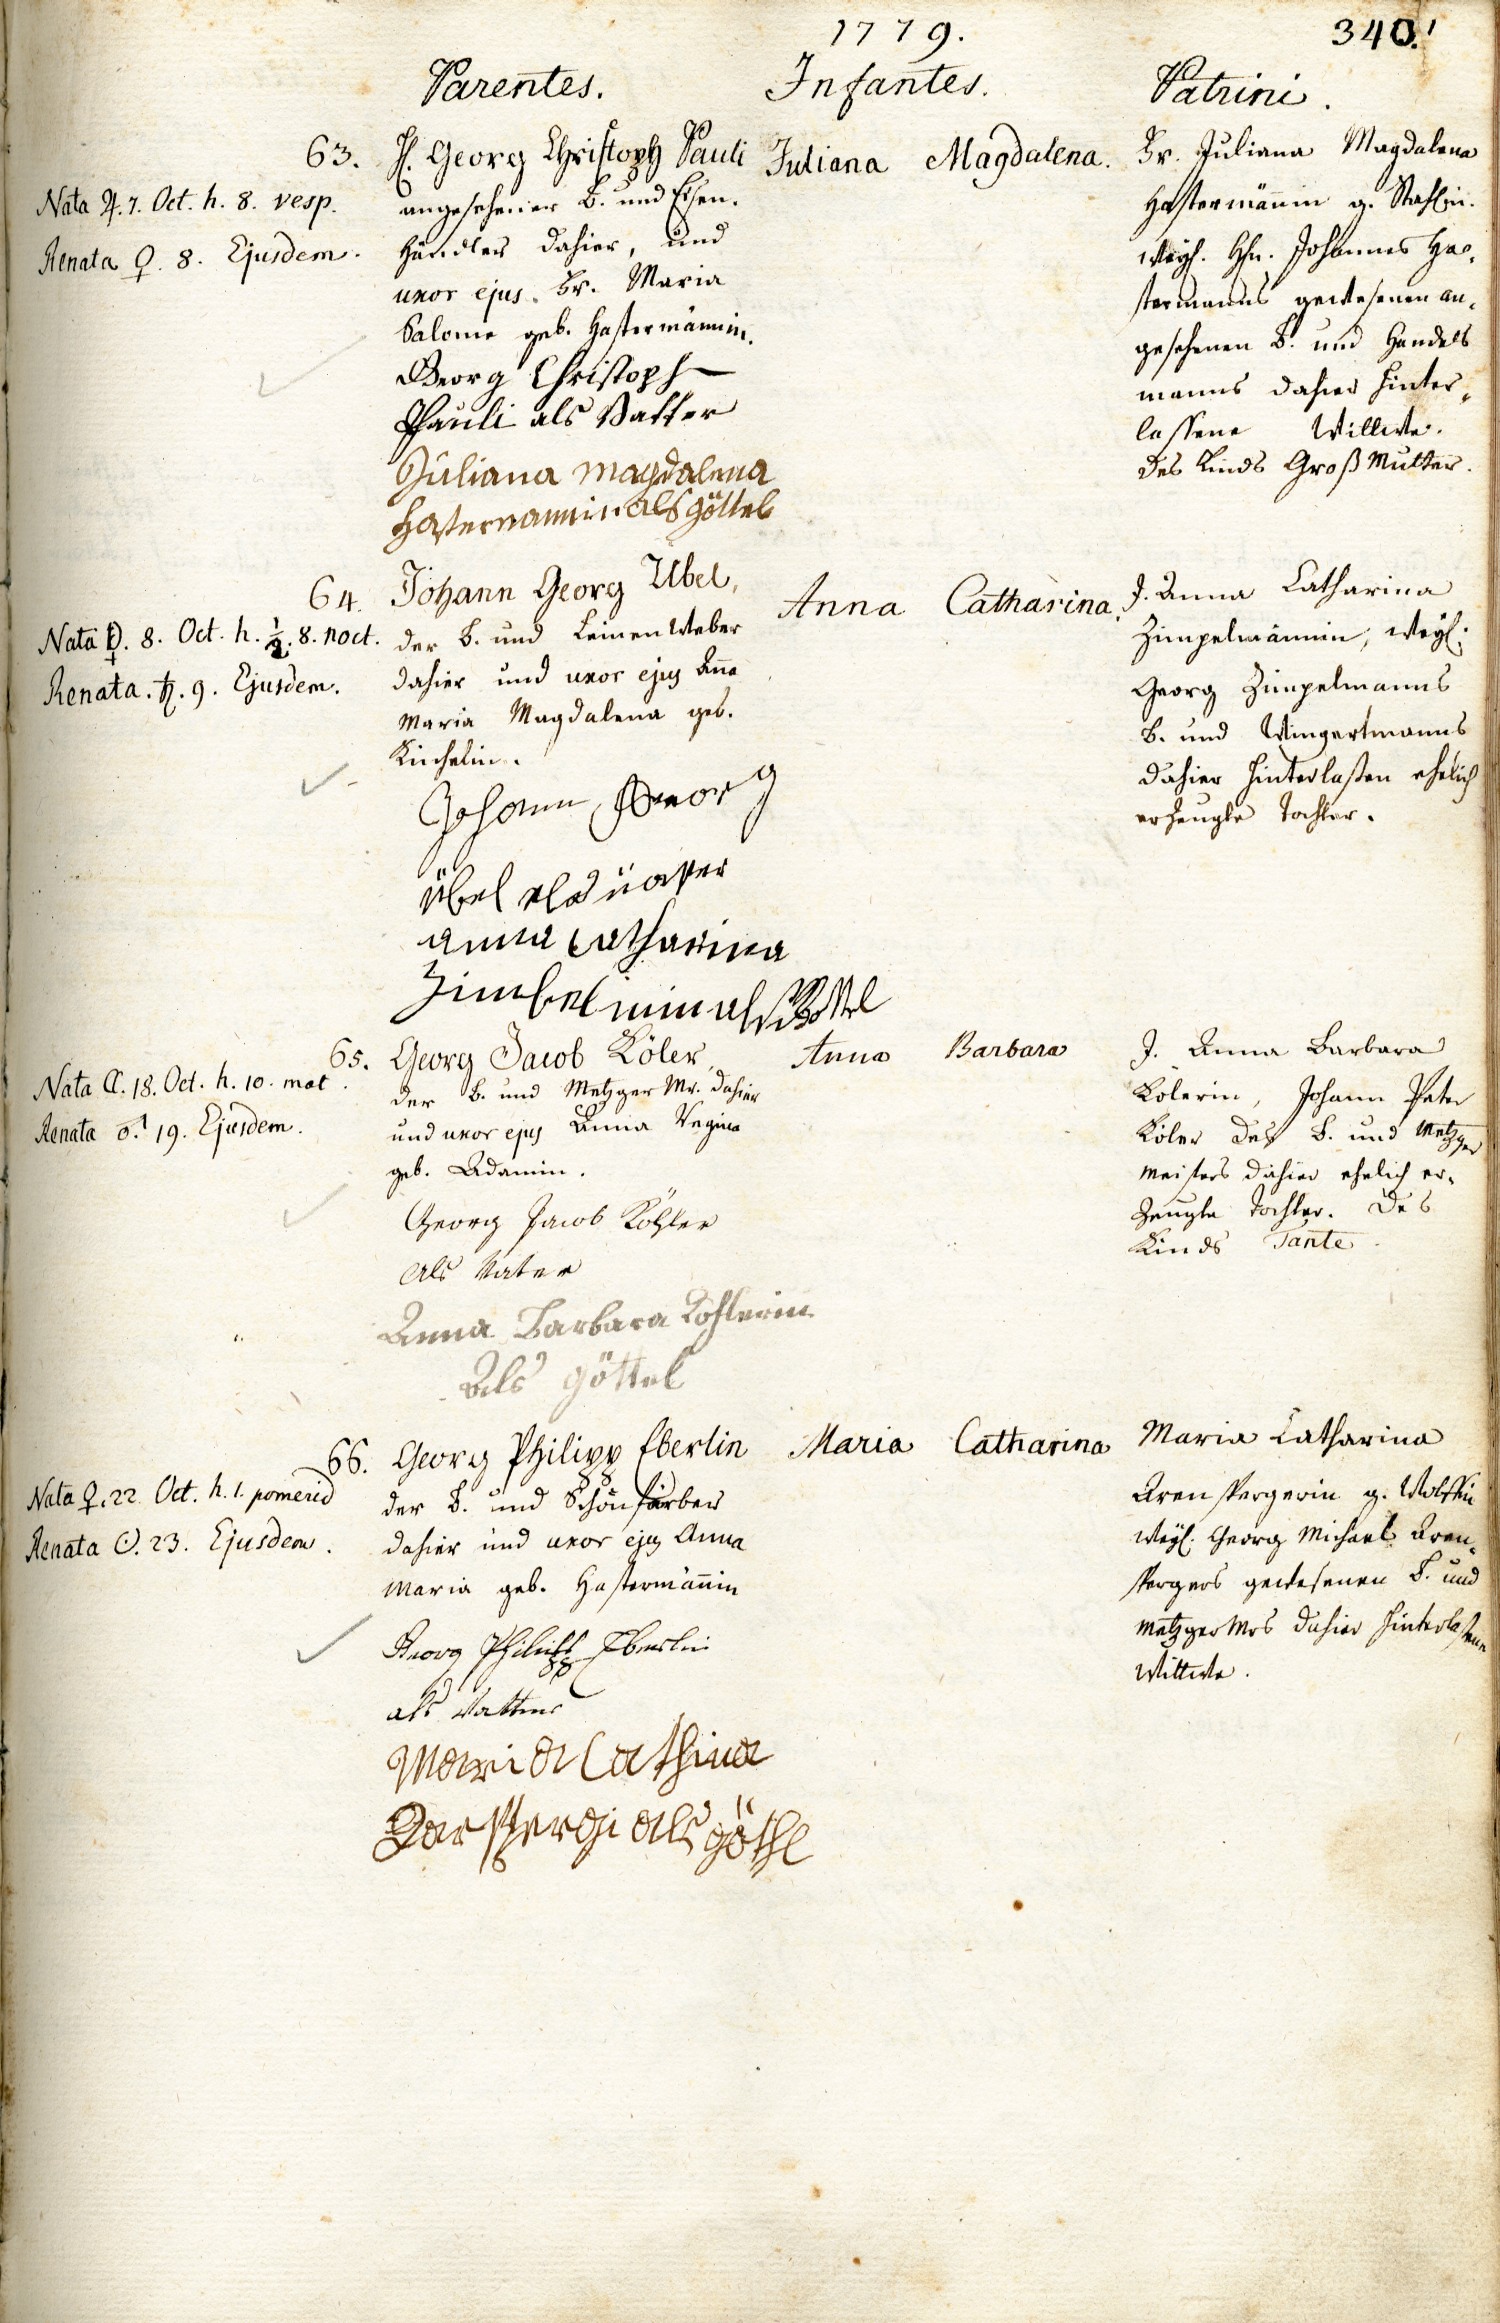 1779.
340.
Parentes.
Infantes.
Patrini.
63.
Nata ♃. 7. Oct. h. 8. vesp.
Renata ♀. 8. Ejusdem.
H. Georg Christoph Pauli
angesehener B. und Eisen-
händler dahier, und
uxor ejus. Fr. Maria
Salome geb. Hastermännin.
Georg Christoph
Pauli als Vatter
Juliana Magdalena
Hastermannin als göttel
Juliana Magdalena.
Fr. Juliana Magdalena
Hastermännin g. Stahlin.
weyl. Hhn. Johannes Ha-
stermanns gewesenen an-
gesehenen B. und Handels
manns dahier hinter-
lassene Wittwe.
des Kinds Groß Mutter.
64.
Nata ♀. 8. Oct. h. ½. 8. noct.
Renata. ♄. 9. Ejusdem.
Johann Georg Ubel,
der B. und Leinen Weber
dahier und uxor ejus Aña
Maria Magdalena geb.
Kuchelin.
Johann Georg
übel als vatter
anna catharina
Zimbelmin als göttel
Anna Catharina.
J. Anna Catharina
Zimpelmännin, weyl:
Georg Zimpelmanns
B. und Wingertmanns
dahier hinterlaßen ehelich
erzeugte Tochter.
65.
Nata ☾. 18. Oct. h. 10. mat.
Renata ♂. 19. Ejusdem.
Georg Jacob Köler,
der B. und Metzger Mr. dahier
und uxor ejus Anna Regina
geb. Adamin.
Georg Jacob Köhler
als Vater
Anna Barbara Kohlerin
Als göttel
Anna Barbara
J. Anna Barbara
Kölerin, Johann Peter
Köler des B. und Metzger
meisters dahier ehelich er-
zeugte Tochter. des
Kinds Tante.
66.
Nata ♀. 22 Oct. h. 1. pomerid
Renata ☉. 23. Ejusdem.
Georg Philipp Eberlin
der B. und Schönfärber
dahier und uxor ejus Anna
Maria geb. Hastermännin
Georg Philipp Eberlin
als Vatter
Maria Cathina
als göthl
Maria Catharina
Maria Catharina
Arenspergerin g. Wolffin
weyl. Georg Michael Aren-
spergers gewesenen B. und
Metzger Mrs dahier hinterlaßene
Wittwe.